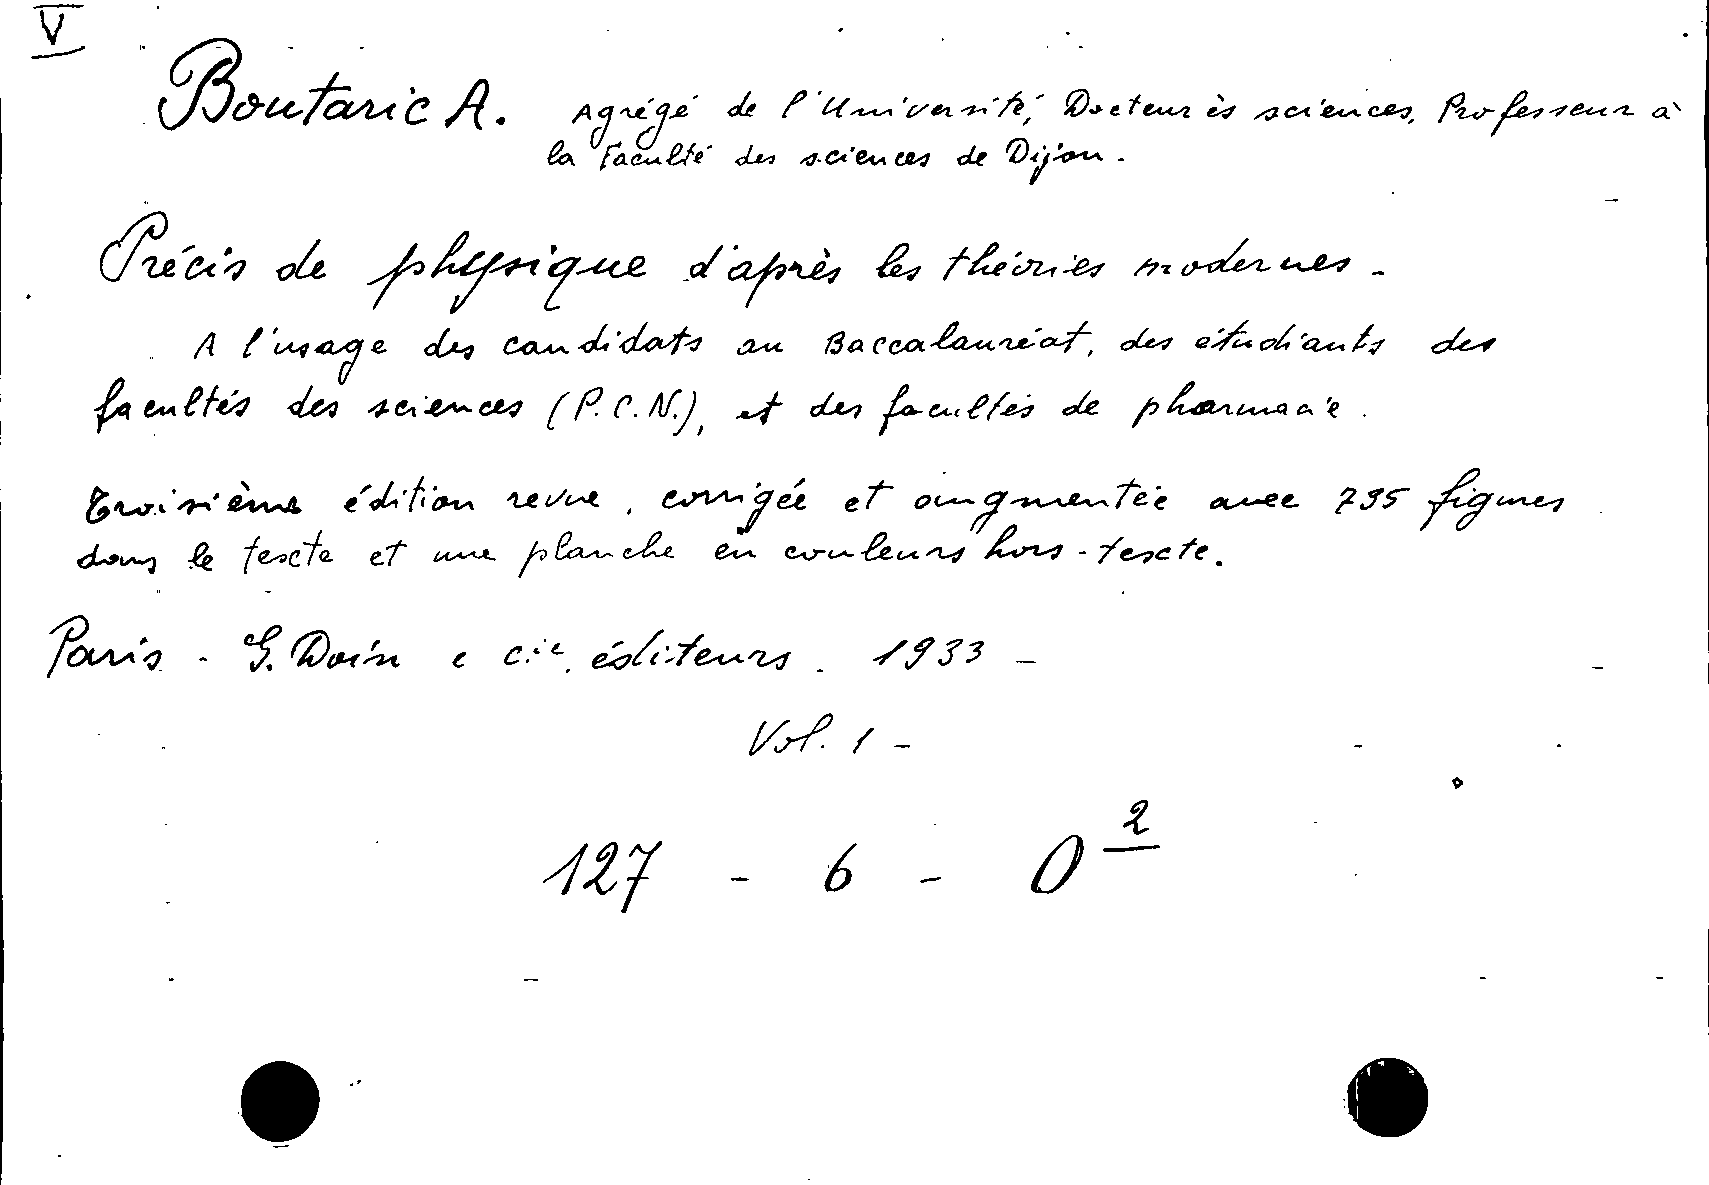 V
Boutaric A. Agrégé de l'Université, Docteur ès sciences, Professeur à
la Faculté des sciences de Dijon.
Précis de physique d'après les théories modernes -
A l'usage des candidats au Baccalauréat, des étudiants des
facultés des sciences (P.C.N.), et des facultés de pharmacie.
Troisième édition revue, corrigée et augmentée avec 735 figures
dans le texte et une planche en couleurs hors-texte.
Paris - G. Doin e Cie, éditeurs. 1933 -
Vol. 1 -
127 - 6 - 0 2